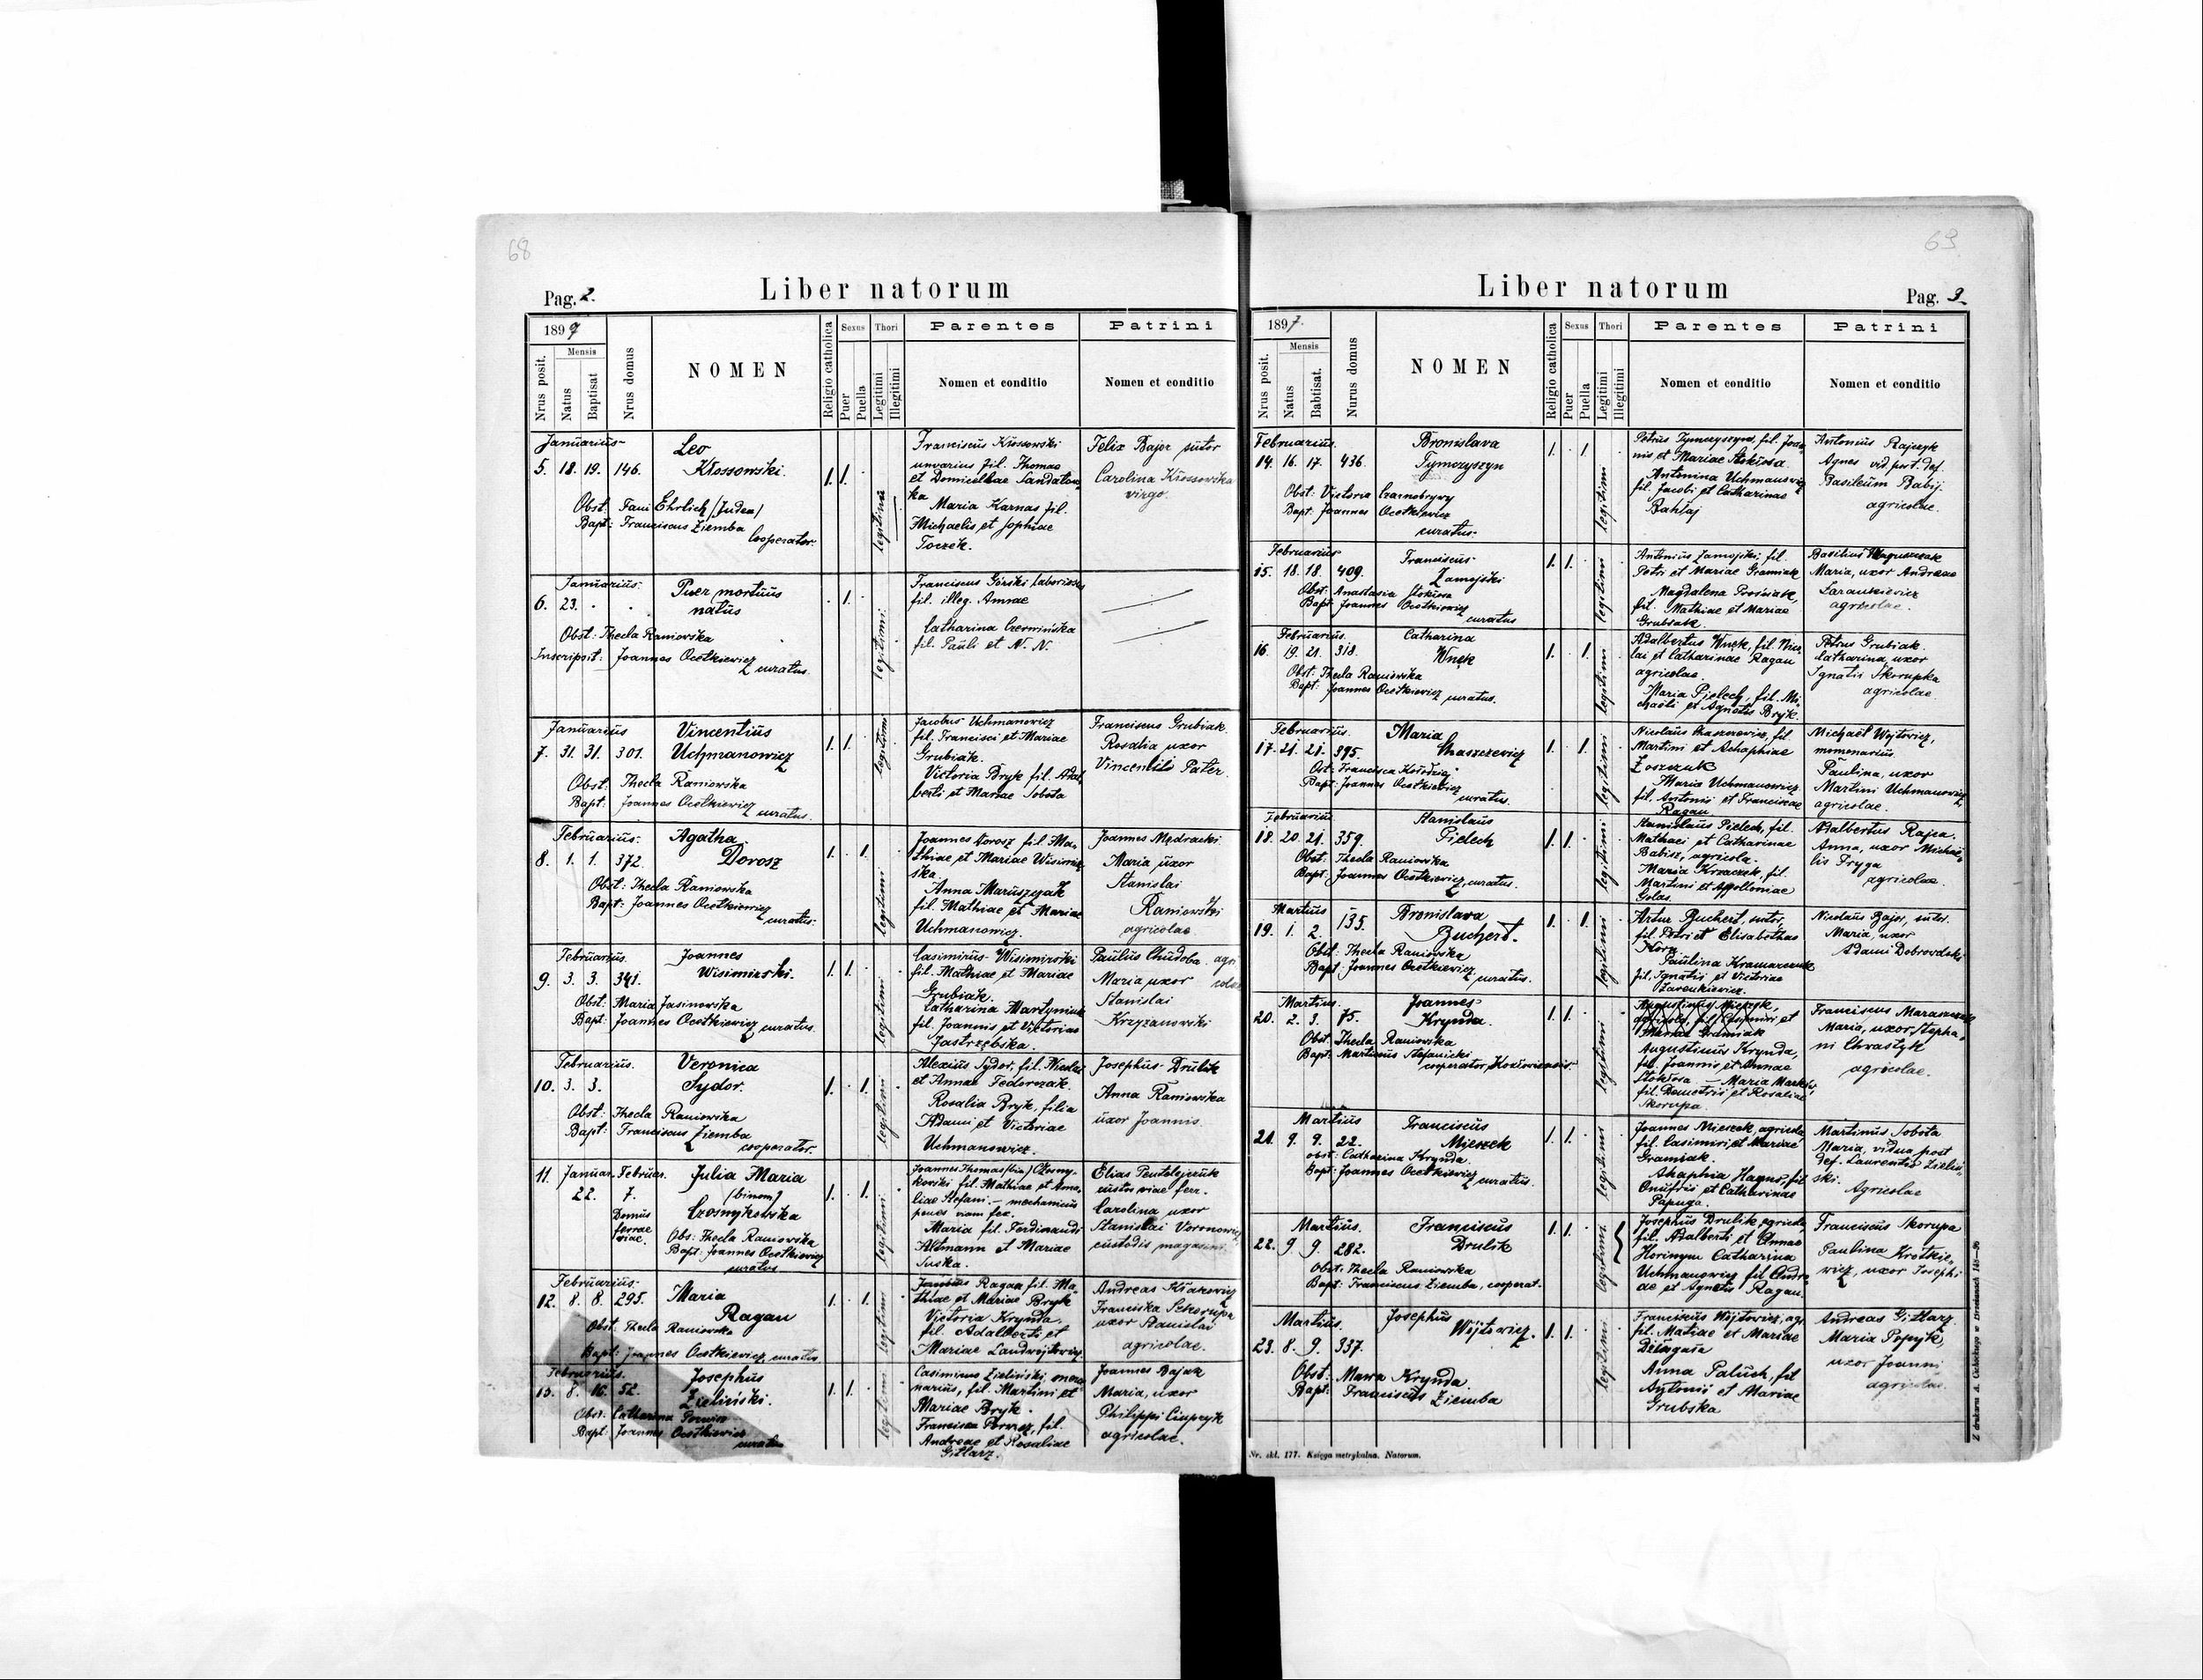 68
Liber natorum
Pag. 2.
1897
Nrus posit.
Mensis
Natus
Baptisat
Nrus domus
NOMEN
Religio catholica
Sexus
Puer
Puella
Thori
Legitimi
Illegitimi
Parentes
Nomen et conditio
Patrini
Nomen et conditio
Januarius
5. 18. 19. 146.
Leo
Kłossowski.
Obst: Fani Ehrlich /Judea/
Bapt: Franciscus Ziemba
Cooperator.
1. 1.
legitimi
Franciscus Kłossowski
fil. Thomae
et Domicellae
Maria Karnas fil.
Michaelis et Sophiae
Toczek.
Felix Bajor sutor
Carolina Kłossowska
virgo.
Januarius.
6. 23.
Puer mortuus
natus
Obst: Thecla Raniowska
Inscripsit: Joannes Ocetkiewicz
curatus.
1.
legitimi
Franciscus Górski
fil. illeg. Annae
Catharina Czerwińska
fil. Pauli et N. N.
Januarius
7. 31. 31. 301.
Vincentius
Uchmanowicz
Obst: Thecla Raniowska
Bapt: Joannes Ocetkiewicz
curatus.
1. 1.
legitimi
Jacobus Uchmanowicz
fil. Francisci et Mariae
Grubiak.
Victoria Bryk fil. Adal
berti et Mariae Sobota
Franciscus Grubiak
Rosalia uxor
Vincentii Pater.
Februarius.
8. 1. 1. 372.
Agatha
Dorosz
Obst: Thecla Raniowska
Bapt: Joannes Ocetkiewicz
curatus.
1. 1.
legitimi
Joannes Dorosz fil. Ma-
thiae et Mariae
ska.
Anna Maruszczak
fil. Mathiae et Mariae
Uchmanowicz.
Joannes Mędracki
Maria uxor
Stanislai
Raniowski
agricolae
Februarius.
9. 3. 3. 341.
Joannes
Wisimirski.
Obst: Maria Jasinowska
Bapt: Joannes Ocetkiewicz
curatus.
1. 1.
legitimi
Casimirus Wisimirski
fil. Mathiae et Mariae
Grubiak.
Catharina Martyniuk
fil. Joannis et Victoriae
Jastrzębska.
Paulus Chudoba agri
Maria uxor colae
Stanislai
Krzyżanowski
Februarius.
10. 3. 3.
Veronica
Sydor.
Obst: Thecla Raniowska
Bapt: Franciscus Ziemba
cooperator.
1. 1.
legitimi
Alexius Sydor, fil. Nicolai
et Annae Fedorczak.
Rosalia Bryk, filia
Adami et Victoriae
Uchmanowicz.
Josephus Drulik
Anna Raniowska
uxor Joannis.
11. Januar. Februar.
22. 7.
Domus
ferrae
viae.
Julia Maria
/binom/
Czosnykowska
Obs: Thecla Raniowska
Bapt: Joannes Ocetkiewicz
curatus
1. 1.
legitimi
Joannes Thomas /bin/ Czosny-
kowski fil. Mathiae et Ama-
liae Stefani. – mechanicus
penes viam fer.
Maria fil. Ferdinandi
Altmann et Mariae
Suska.
Elias Pentelejczuk
custos viae ferr.
Carolina uxor
Stanislai Voronowicz
custodis magasini.
Februarius.
12. 8. 8. 295.
Maria
Ragan
Obst. Thecla Raniowska
Bapt: Joannes Ocetkiewicz, curatus
1. 1.
legitimi
Jacobus Ragan fil. Ma-
thiae et Mariae Bryk
Victoria Krynda,
fil. Adalberti et
Mariae Landwójtowicz
Andreas Kłakowicz
Franciska Skorupa
uxor Stanislai
agricolae.
Februarius.
13. 8. 16. 52.
Josephus
Zieliński.
Obst: Catharina
Bapt: Joannes Ocetkiewicz
curatus
1. 1.
legitimi
Casimirus Zieliński,
fil. Martini et
Mariae Bryk.
Francisca fil.
Andreae et Rosaliae
Gitlarz.
Joannes Bajak
Maria, uxor
Philippi Ciupryk
agricolae.
63
Liber natorum
Pag. 3.
1897.
Nrus posit.
Mensis
Natus
Babtisat.
Nurus domus
NOMEN
Religio catholica
Sexus
Puer
Puella
Thori
Legitimi
Illegitimi
Parentes
Nomen et conditio
Patrini
Nomen et conditio
Februarius.
14. 16. 17. 436.
Bronislava
Tymczyszyn
Obst: Victoria Czarnobrywy
Bapt: Joannes Ocetkiewicz
curatus.
1. 1.
legitimi
Petrus Tymczyszyn, fil. Joan-
nis et Mariae Stokłosa.
Antonina Uchmanowicz
fil. Jacobi et Catharinae
Bahłaj
Antonius Rajczyk
Agnes vid. post. def.
Basileum Babij.
agricolae.
Februarius.
15. 18. 18. 409.
Franciscus
Zamojski
Obst: Anastasia Stokłosa
Bapt: Joannes Ocetkiewicz
curatus
1. 1.
legitimi
Antonius Zamojski, fil.
Petri et Mariae Gramiak
Magdalena Prośniak,
fil. Mathiae et Mariae
Grubiak.
Basilius
Maria, uxor Andreae
Laraukiewicz
agricolae.
Februarius.
16. 19. 21. 318.
Catharina
Wnęk
Obst: Thecla Raniowska
Bapt: Joannes Ocetkiewicz curatus.
1. 1.
legitimi
Adalbertus Wnęk, fil. Nico
lai et Catharinae Ragan
agricolae.
Maria Pielech, fil. Mi-
chaëli et Agnetis Bryk.
Petrus Grubiak.
Catharina, uxor
Ignatii Skorupka
agricolae.
Februarius.
17. 21. 21. 395.
Maria
Staszczewicz
Ost: Francisca Kołodziej
Bapt: Joannes Ocetkiewicz
curatus.
1. 1.
legitimi
Nicolaus Staszczewicz, fil
Martini et Achaphiae
Łoszczuk
Maria Uchmanowicz
fil. Antonii et Franciscae
Ragan
Michaël Wojtowicz,
Paulina, uxor
Martini Uchmanowicz
agricolae.
Februarius
18. 20. 21. 359.
Stanislaus
Pielech
Obst: Thecla Raniowska
Bapt: Joannes Ocetkiewicz, curatus.
1. 1.
legitimi
Stanislaus Pielech, fil.
Mathaei et Catharinae
Babisz, agricola.
Maria Krzaczek, fil.
Martini et Apolloniae
Golas.
Adalbertus Rajca.
Anna, uxor Michaë-
lis Pryga
agricolae.
Martius
19. 1. 2. 135.
Bronislava
Buchert.
Obst: Thecla Raniowska
Bapt: Joannes Ocetkiewicz
curatus.
1. 1.
legitimi
Artur Buchert, sutor,
fil. Petri et Elisabethae
Kora
Paulina Kramarczuk
fil. Ignatii et Victoriae
Nicolaus Bajor, sutor.
Maria, uxor
Adami Dobrowolski
Martius.
20. 2. 3. 75.
Joannes
Krynda.
Obst: Thecla Raniowska
Bapt: Martinus Stefanicki
cooperator, Kozioviensis.
1. 1.
legitimi
Augustinus Mieszek,
agricola, fil. Casimiri et
Mariae Gramiak
Augustinus Krynda,
fil. Joannis et Annae
Stokłosa – Maria
fil. Demetrii et Rosaliae
Skorupa.
Franciscus Maraszczak
Maria, uxor Stepha-
ni Chrastyk
agricolae.
Martius
21. 9. 9. 22.
Franciscus
Mieszek
Obst: Catharina Krynda.
Bapt: Joannes Ocetkiewicz
curatus.
1. 1.
legitimi
Joannes Mieszek, agricola
fil. Casimiri, et Mariae
Gramiak.
Ahaphia Hagno, fil
Onufrii et Catharinae
Papuga.
Martinus Sobota
Maria, vidua post
def. Laurentio Zieliń-
ski.
Agricolae
Martius.
22. 9 9. 282.
Franciscus
Drulik
Obst: Thecla Raniowska
Bapt: Franciscus Ziemba, cooperat.
1. 1.
legitimi
Josephus Drulik, agricola
fil. Adalberti et Annae
Horingen Catharina
Uchmanowicz fil Andre
ae et Agnetis Ragan.
Franciscus Skorupa
Paulina Krotkie-
wicz, uxor Josephi
Martius.
23. 8. 9. 337.
Josephus
Wójtowicz.
Obst: Maria Krynda
Bapt: Franciscus Ziemba
1. 1.
legitimi
Franciscus Wójtowicz, agr
fil. Matiae et Mariae
Anna Paluch, fil
Antonii et Mariae
Grubska
Andreas Gitlarz
Maria Popyk,
uxor Joanni
agricolae.
Nr. skl. 177. Księga metrykalna. Natorum.
Z drukarni A. Cichockiego w Brzeżanach 148—96